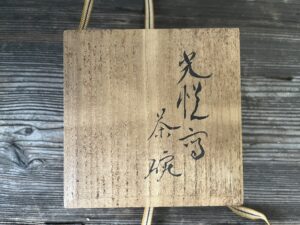 光悦写
茶碗